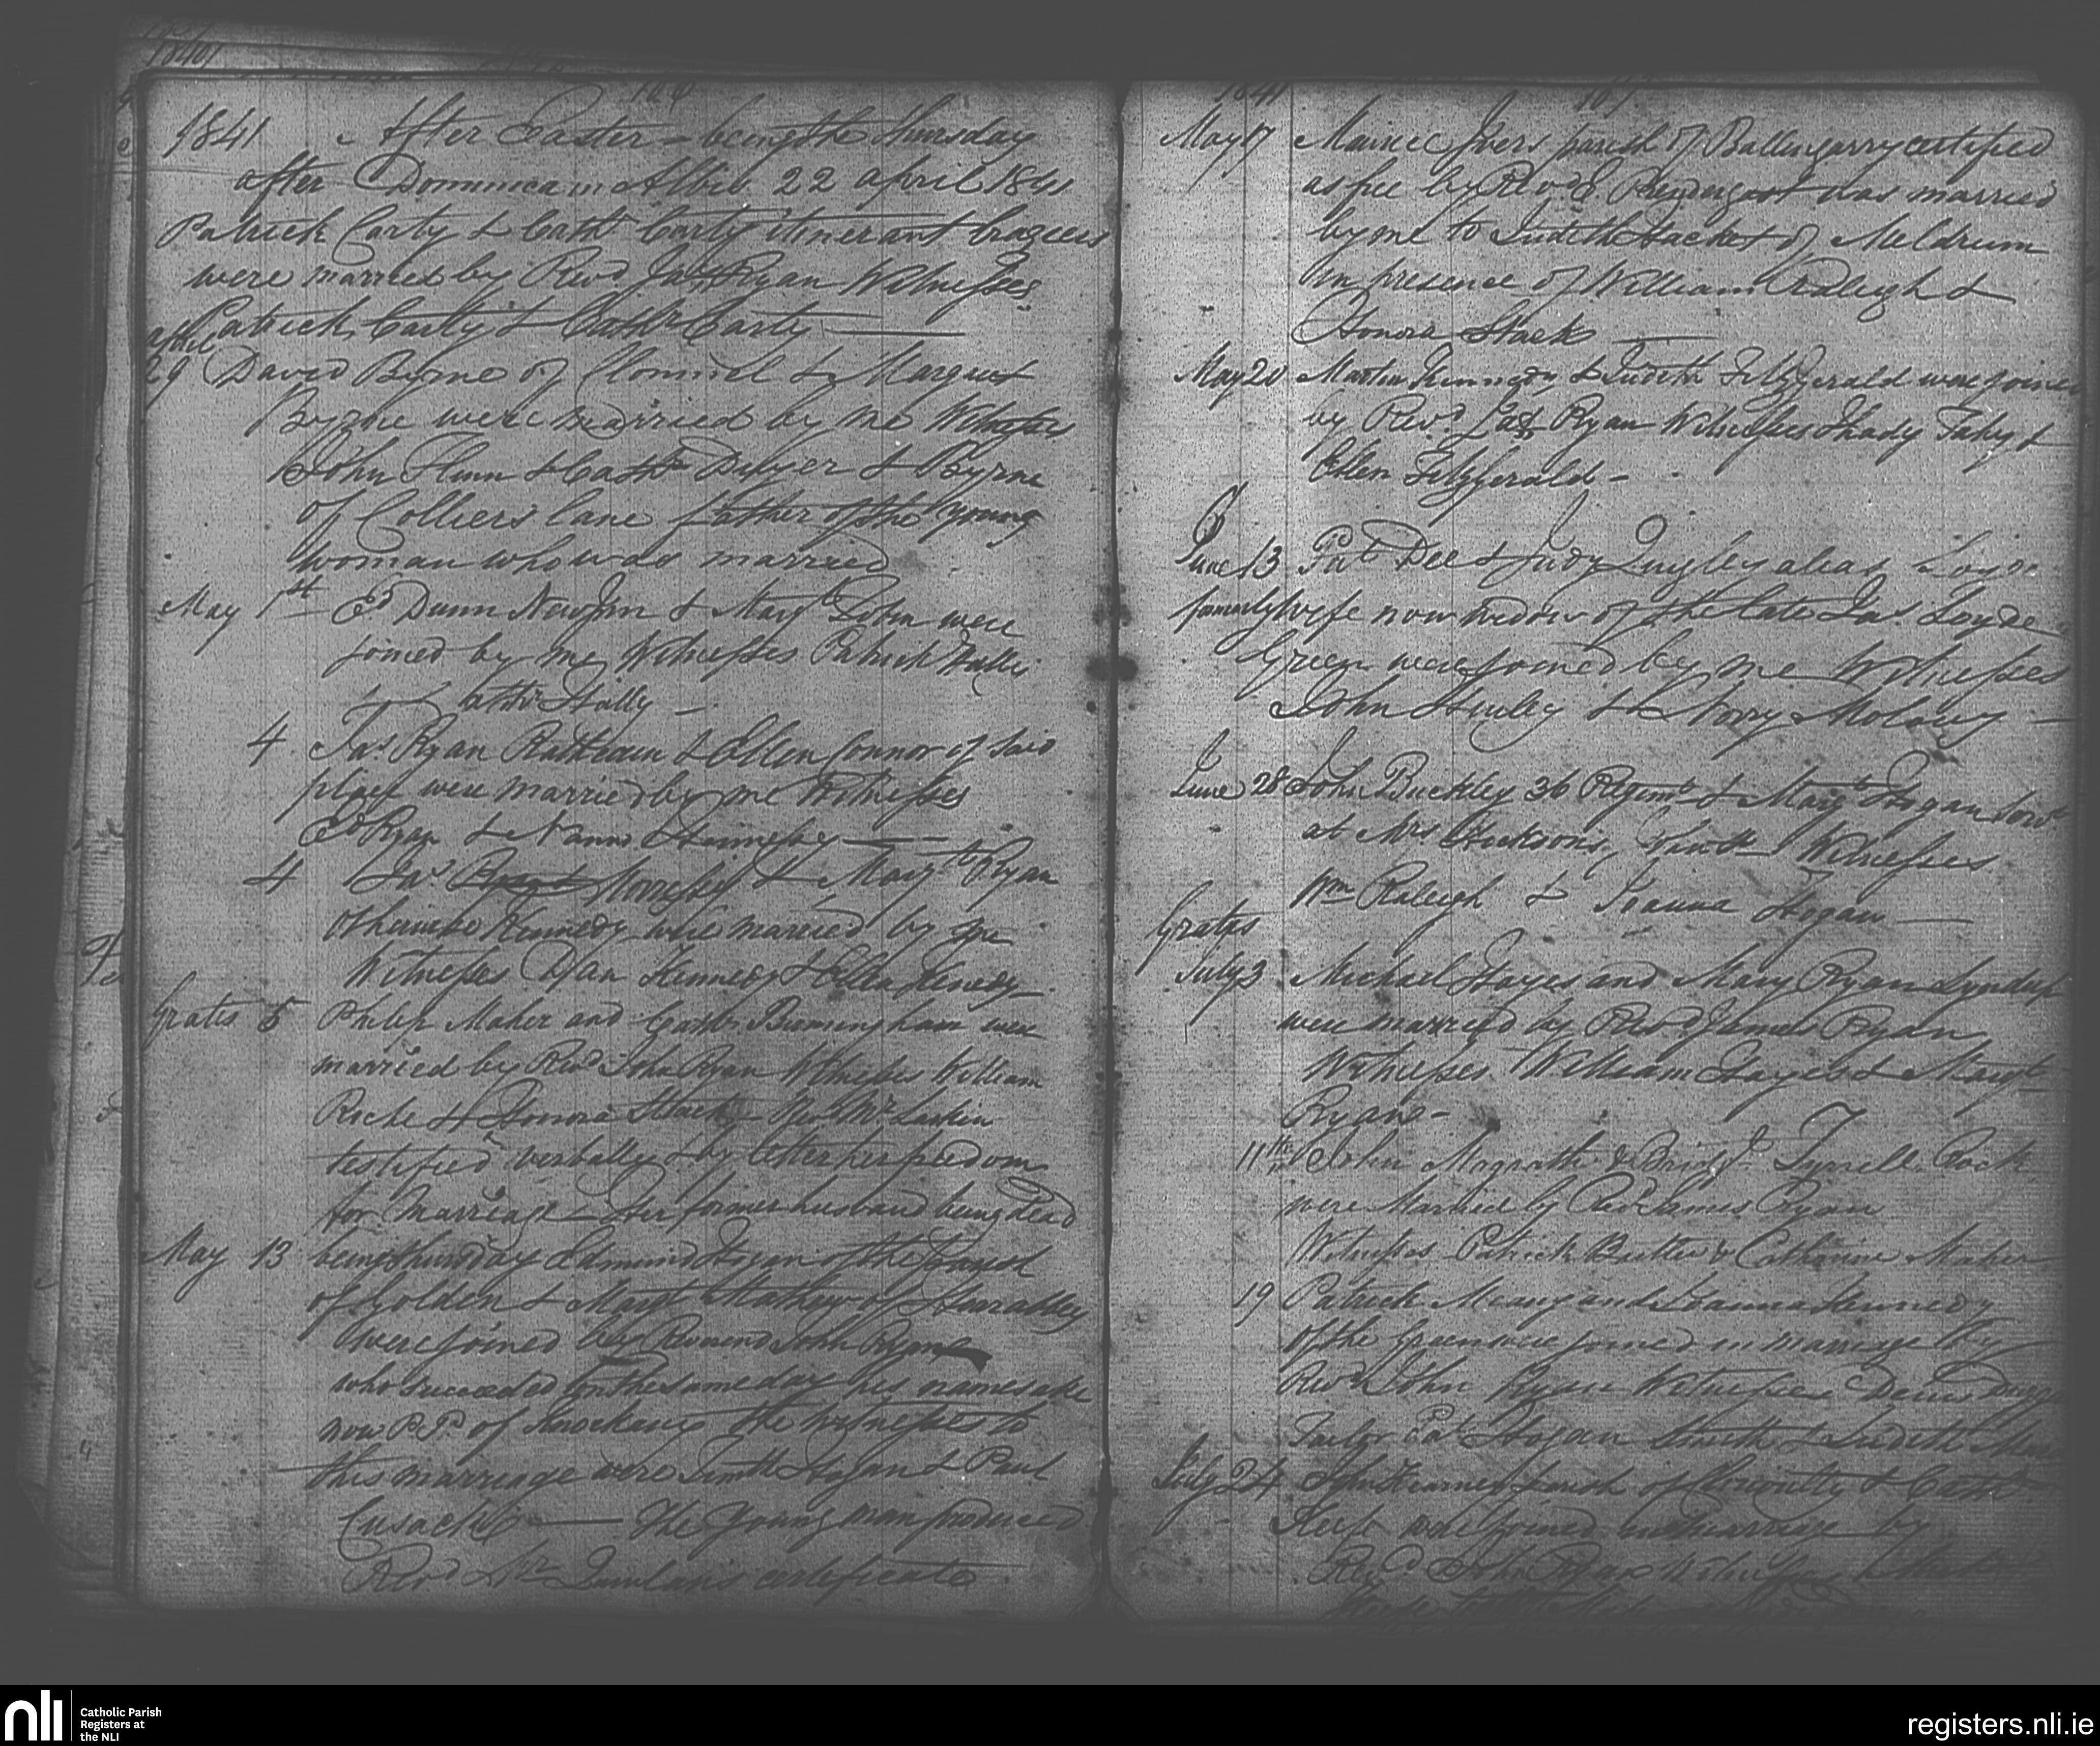 1840
106
1841 After Easter – being the Thursday
after Dominicam Albis 22 april 1841
Patrick Carty & Cath Carty itinerant braziers
were married by Revd Jas Ryan Witnesses
Patrick Carty & Cathr Carty
april
29 David Byrne of Clonmel & Margaret
Byrne were married by me Witnesses
John Flinn & Cathr Dwyer & Byrne
of Colliers lane father of the young
woman who was married
May 1st Ed Dunn & Margt were
joined by me Witnesses Patrick
Cathr Hally –
4 Jas Ryan & Ellen Connor of said
place were married by me Witnesses
Ed Ryan &
4 Jas & Margt Ryan
otherwise Kennedy were married by me
Witnesses Dan Kennedy & Ellen Kenedy
Gratis 5 Philip Maher and Cathr Bermingham were
married by Revd John Ryan Witnesses William
Roche & Honora Stack – Revd Mr Larkin
testified verbally & by letter her freedom
for Marriage – Her former husband being dead
May 13 being thursday Edmund Hogan of the Parish
of Golden & Margt Mathew of
were joined by Reverend John Ryan
who succeeded on the same day his namesake
now P.P. of the witnesses to
this marriage were Timth Hogan & Paul
Cusack – The young man produced
Revd Mr Quinlan's certificate
1841 107
May 17 Ivers parish of Ballingarry certified
as free by Revd Prendergast was married
by me to Judith Hacket of Meldrum
in presence of William Raleigh &
Honora Stack
May 20 Martin Kennedy & Judith Fitzgerald were joined
by Revd Jas Ryan Witnesses Thady Fahy &
Ellen Fitzgerald –
June 13 Pat Dee & Judy Quigley alias Loyde
formerly wife now widow of the late Jas Loyde
Green were joined by me Witnesses
John & Norry Molony –
June 28 John Buckley 36 Regimt & Margt Hogan servt
at Mrs Witnesses
Wm Raleigh & Joanna Hogan
Gratis
July 3 Michael Hayes and Mary Ryan
were married by Revd James Ryan
Witnesses William Hayes & Margt
Ryan –
11th John Magrath & Bridgt Tyrrell Rock
were Married by Revd James Ryan
Witnesses Patrick Butler & Catherine Maher
19 Patrick Meany and Joanna Kennedy
of the Green were joined in marriage by
Revd John Ryan Witnesses Denis
Tailor Pat Hogan Smith & Judith
July 24 John Parish of & Cathr
were joined in marriage by
Revd John Ryan Witnesses
nli
Catholic Parish
Registers at
the NLI
registers.nli.ie